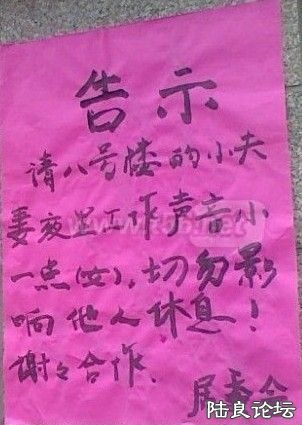 告示
请八号楼的小夫
妻夜里工作声音小
一点(女),切勿影
响他人休息!
谢々合作.
居委会
陆良论坛